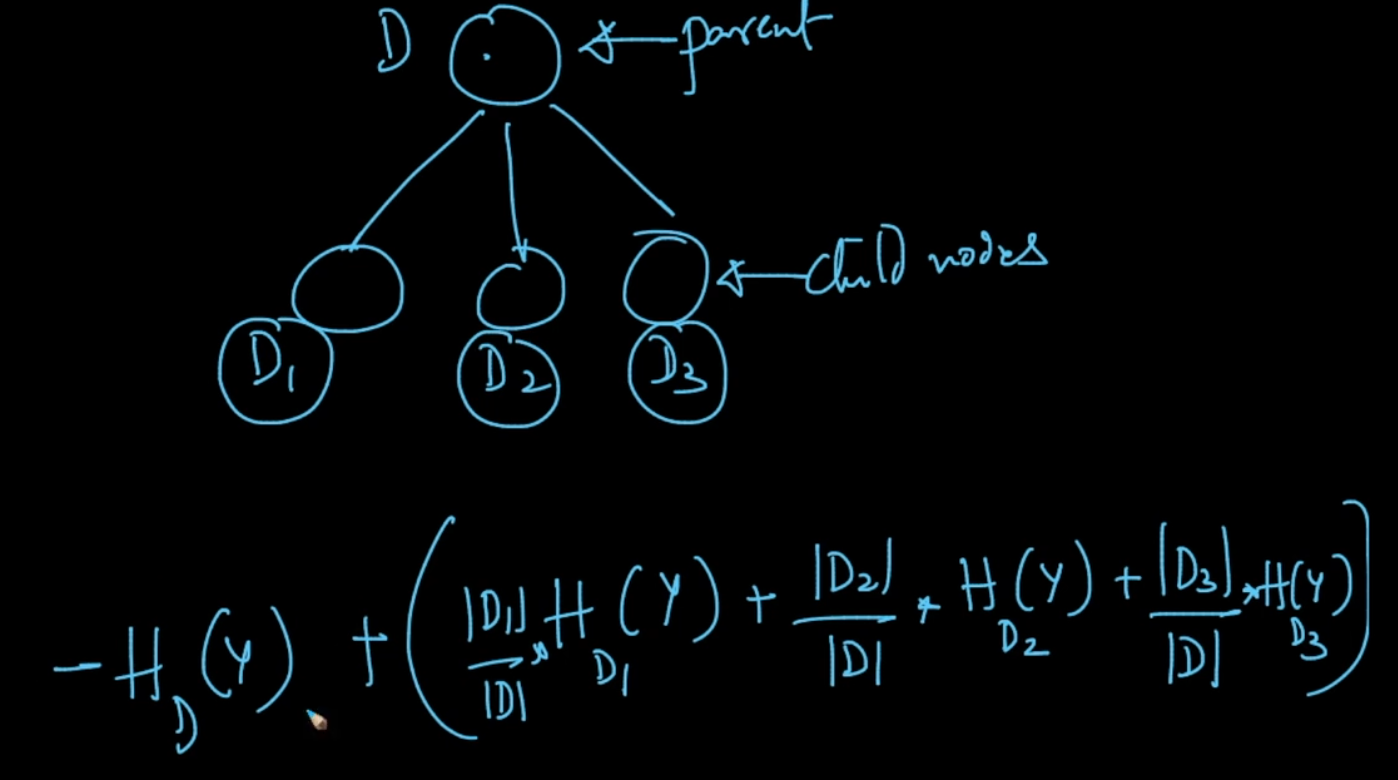 D ← parent
← child nodes
D₁ D₂ D₃
- H_D(Y) + ( |D₁|/|D| * H_D₁(Y) + |D₂|/|D| * H_D₂(Y) + |D₃|/|D| * H_D₃(Y) )